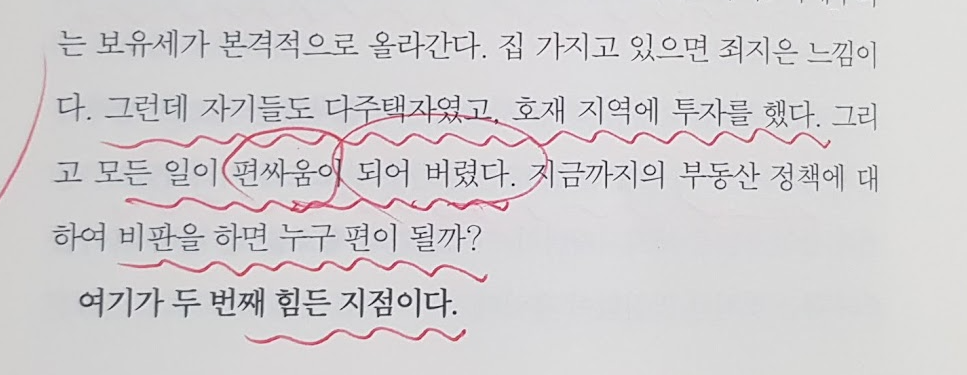 는 보유세가 본격적으로 올라간다. 집 가지고 있으면 죄지은 느낌이
다. 그런데 자기들도 다주택자였고, 호재 지역에 투자를 했다. 그리
고 모든 일이 편싸움이 되어 버렸다. 지금까지의 부동산 정책에 대
하여 비판을 하면 누구 편이 될까?
여기가 두 번째 힘든 지점이다.